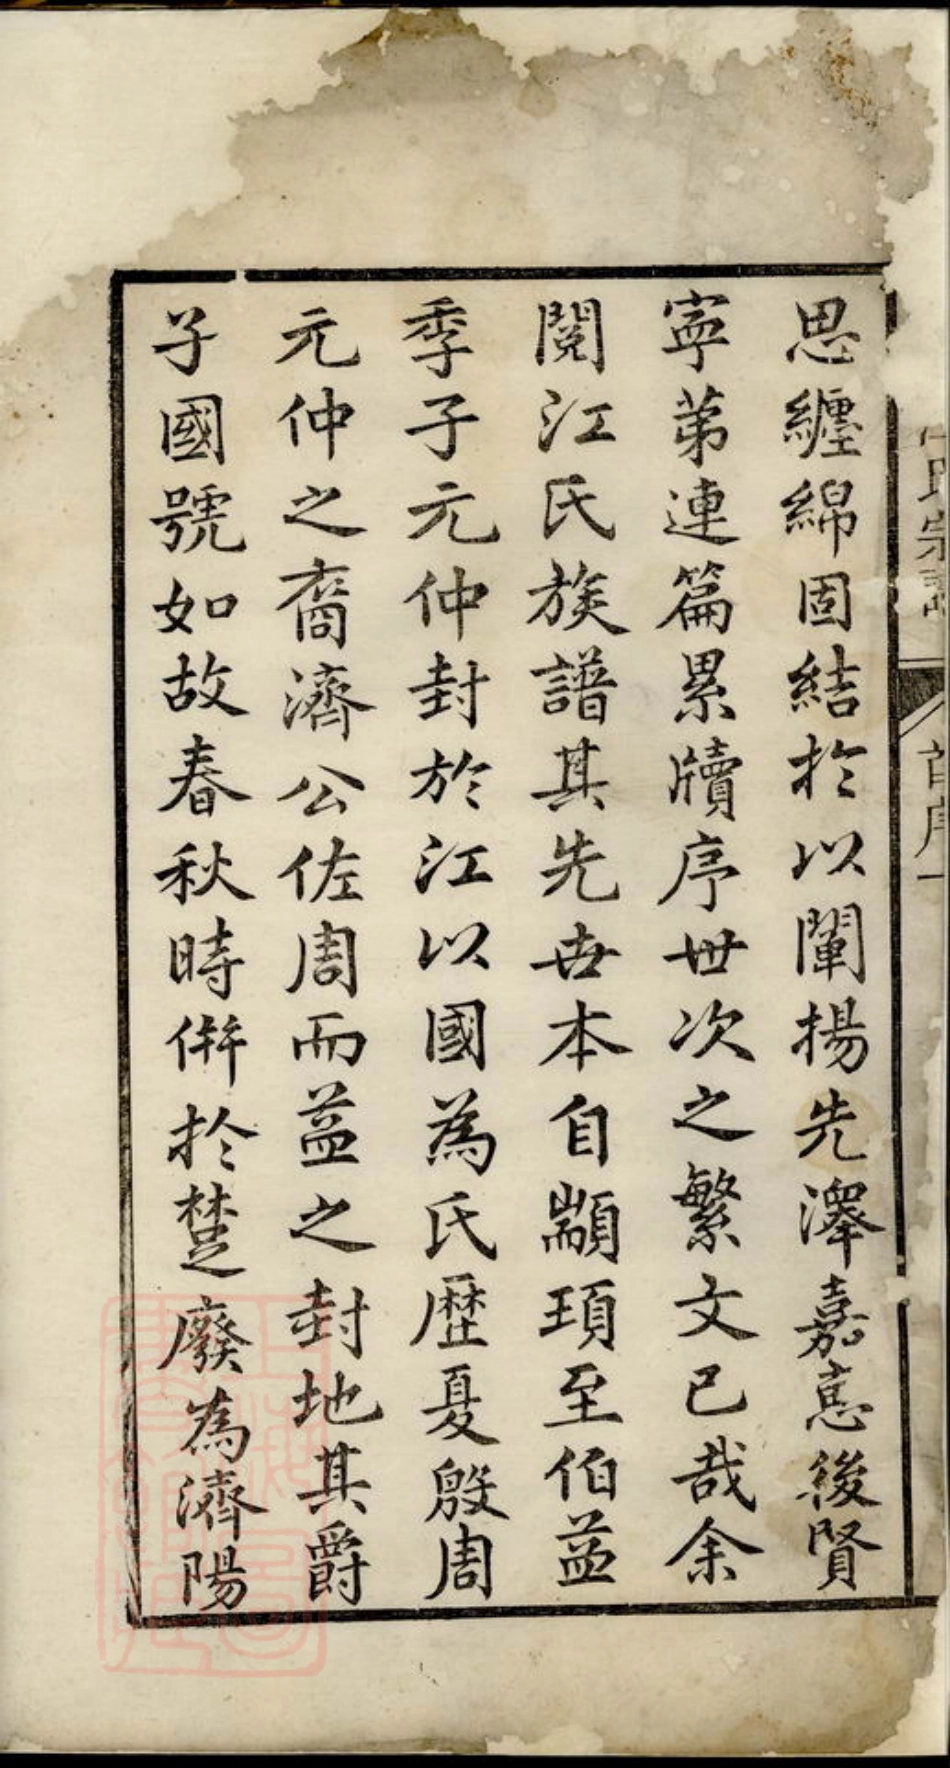 思纏綿固結於以闡揚先澤嘉惠後賢
寧第連篇累牘序世次之繁文已哉余
閱江氏族譜其先世本自顓頊至伯益
季子元仲封於江以國為氏歷夏殷周
元仲之裔濟公佐周而益之封地其爵
子國號如故春秋時併於楚廢為濟陽